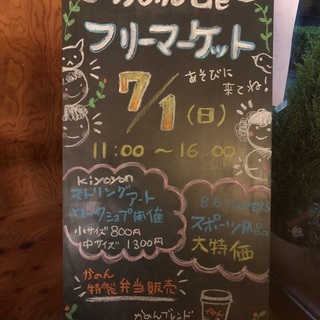 フリーマーケット
7/1(日)
あそびに
来てね!
11:00〜16:00
kiyoyon
ストリングアート
ワークショップ開催
小サイズ 800円
中サイズ 1300円
スポーツ用品
大特価
かめん
特製弁当販売
かめんブレンド